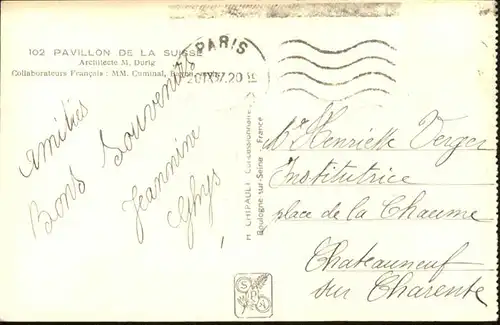 102 PAVILLON DE LA SUISSE
Architecte M. Durig
Collaborateurs Français : MM. Cuminal,
PARIS
Amitiés
Bons Souvenirs
Jeannine
Ghys
H. CHIPAULT Concessionnaire
Boulogne-sur-Seine France
Henriette Verger
Institutrice
place de la Chaume
Chateauneuf
sur Charente